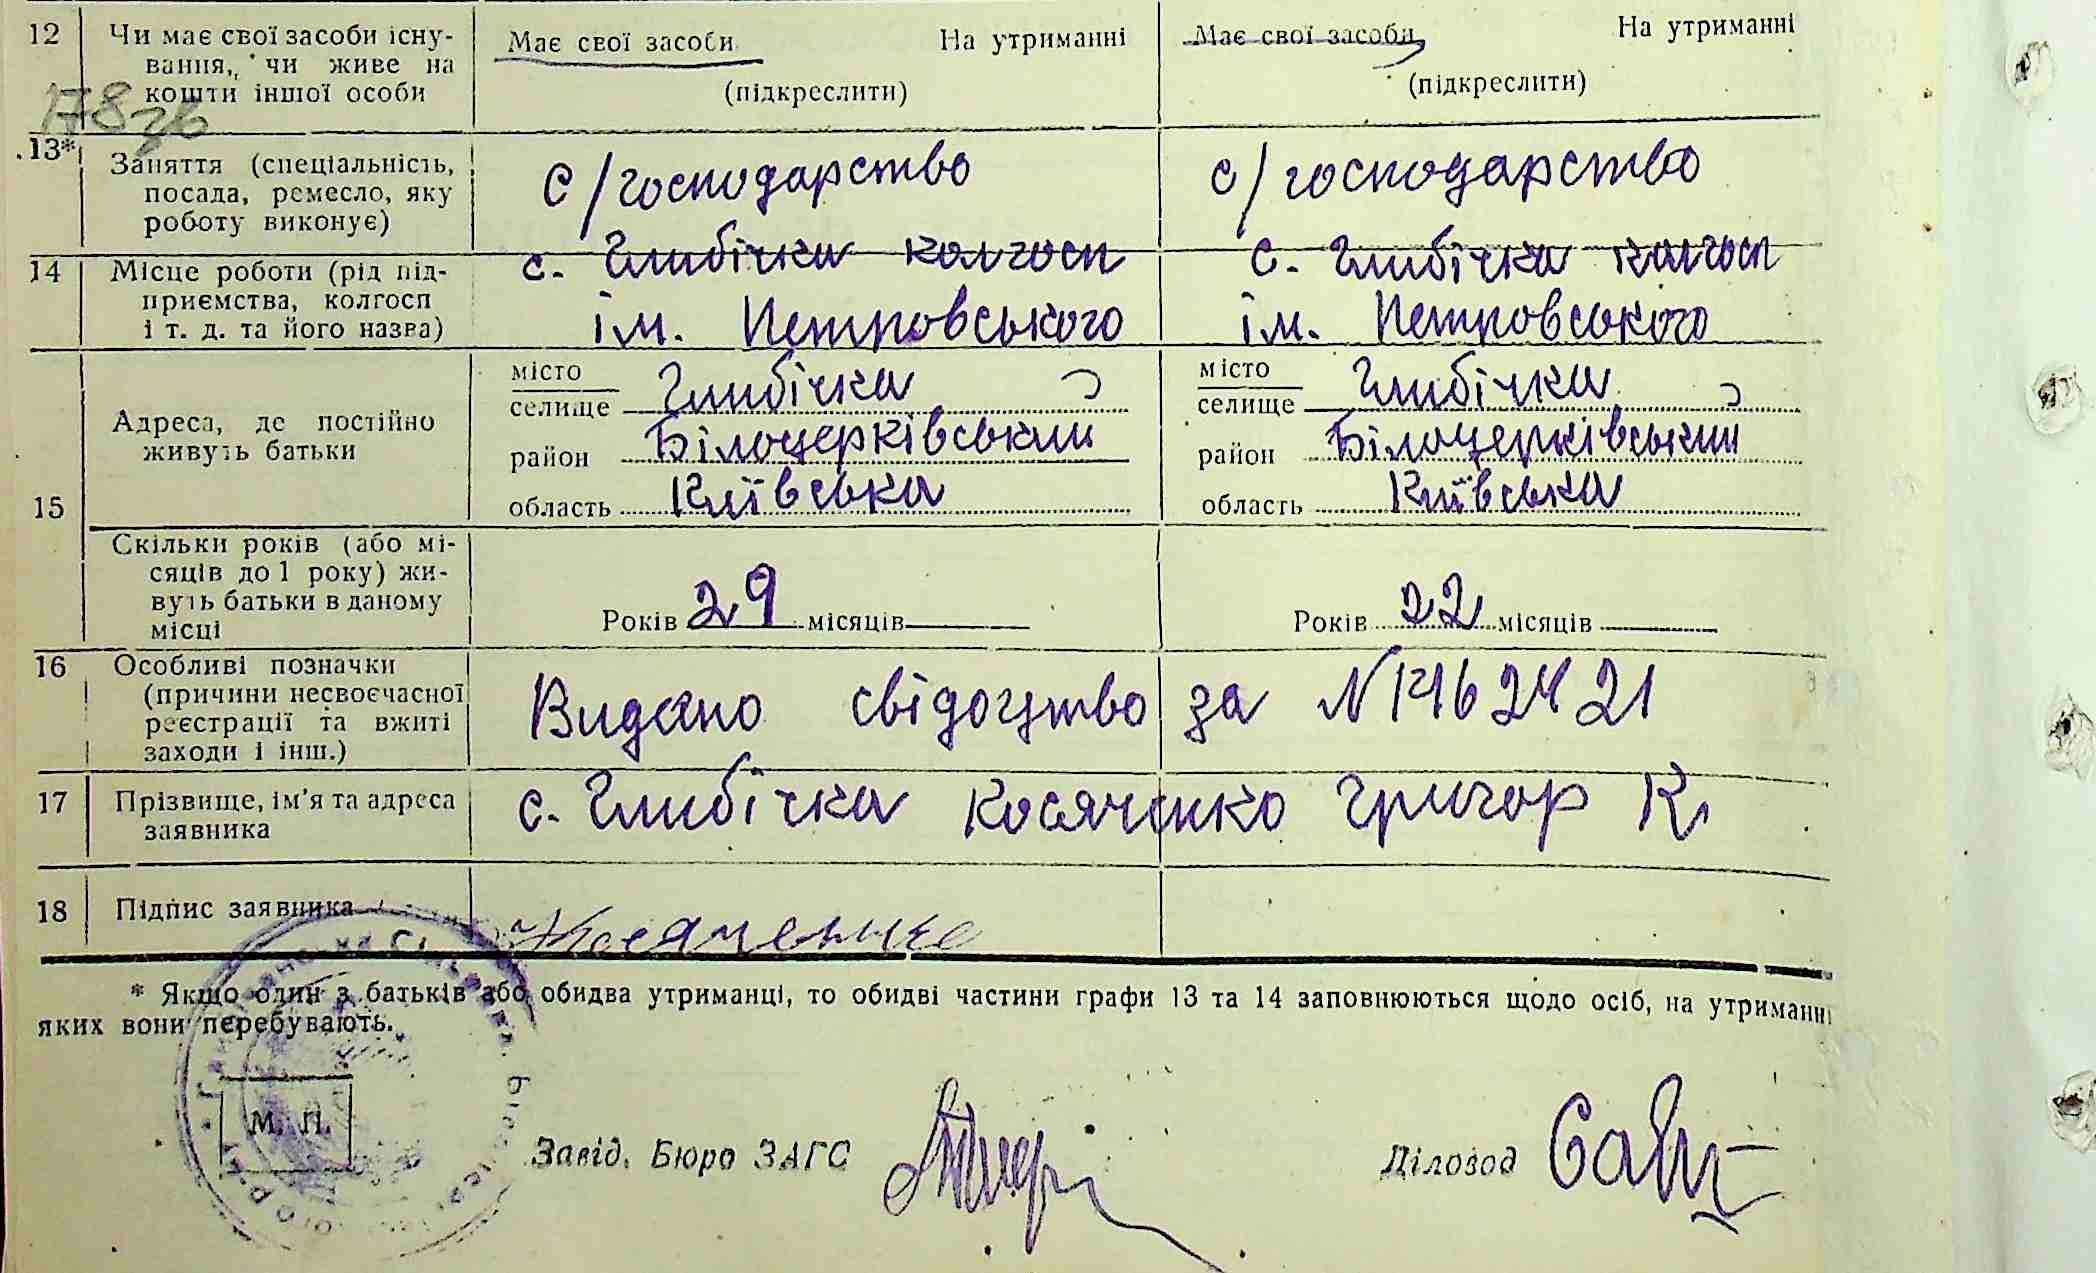 12 Чи має свої засоби існу- Має свої засоби На утриманні Має свої засоби На утриманні
вання, чи живе на (підкреслити) (підкреслити)
кошти іншої особи
178зв
13* Заняття (спеціальність, с/господарство с/господарство
посада, ремесло, яку
роботу виконує)
14 Місце роботи (рід під- с. Глибічка колгосп с. Глибічка колгосп
приємства, колгосп ім. Петровського ім. Петровського
і т. д. та його назва)
15 Адреса, де постійно живуть батьки
місто місто
селище Глибічка селище Глибічка
район Білоцерківський район Білоцерківський
область Київська область Київська
Скільки років (або мі-
сяців до 1 року) жи-
вуть батьки в даному Років 29 місяців Років 22 місяців
місці
16 Особливі позначки
(причини несвоєчасної Видано свідоцтво за N 1462421
реєстрації та вжиті
заходи і інш.)
17 Прізвище, ім'я та адреса с. Глибічка Косяченко Григор К
заявника
18 Підпис заявника Косяченко
* Якщо один з батьків або обидва утриманці, то обидві частини графи 13 та 14 заповнюються щодо осіб, на утриманні
яких вони перебувають.
М. П.
Завід. Бюро ЗАГС Діловод